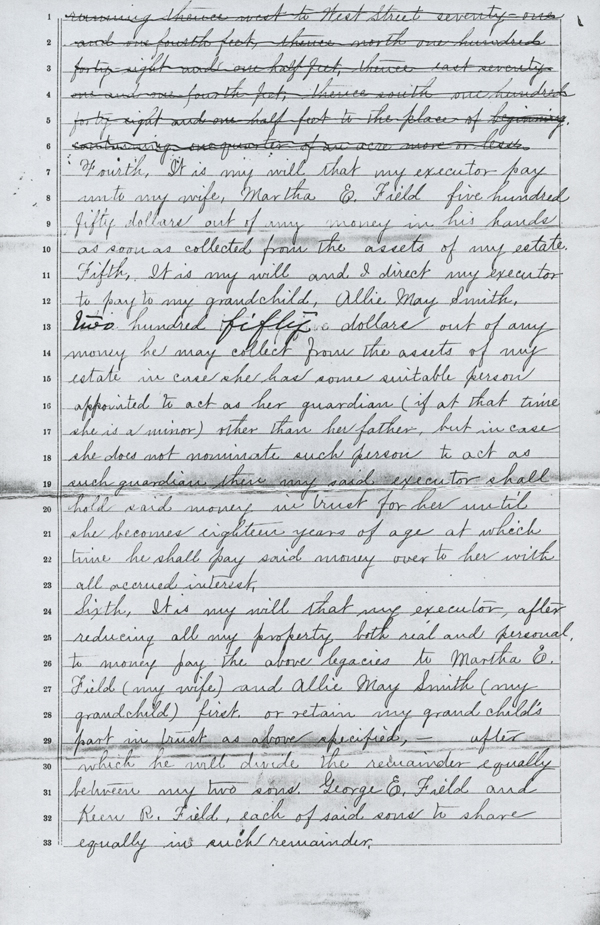 1 running thence west to West Street seventy-one
2 and one fourth feet, thence north one hundred
3 forty-eight and one half feet, thence east seventy-
4 one and one fourth feet, thence south one hundred
5 forty eight and one half feet to the place of beginning,
6 containing one quarter of an acre more or less.
7 Fourth, It is my will that my executor pay
8 unto my wife, Martha E. Field five hundred
9 fifty dollars out of any money in his hands
10 as soon as collected from the assets of my estate.
11 Fifth, It is my will and I direct my executor
12 to pay to my grandchild, Allie May Smith,
13 two hundred fifty dollars out of any
14 money he may collect from the assets of my
15 estate in case she has some suitable person
16 appointed to act as her guardian (if at that time
17 she is a minor) other than her father, but in case
18 she does not nominate such person to act as
19 such guardian then my said executor shall
20 hold said money in trust for her until
21 she becomes eighteen years of age at which
22 time he shall pay said money over to her with
23 all accrued interest.
24 Sixth, It is my will that my executor, after
25 reducing all my property both real and personal,
26 to money pay the above legacies to Martha E.
27 Field (my wife) and Allie May Smith (my
28 grandchild) first. or retain my grand child's
29 part in trust as above specified, — after
30 which he will divide the remainder equally
31 between my two sons. George E. Field and
32 Keen R. Field, each of said sons to share
33 equally in such remainder.